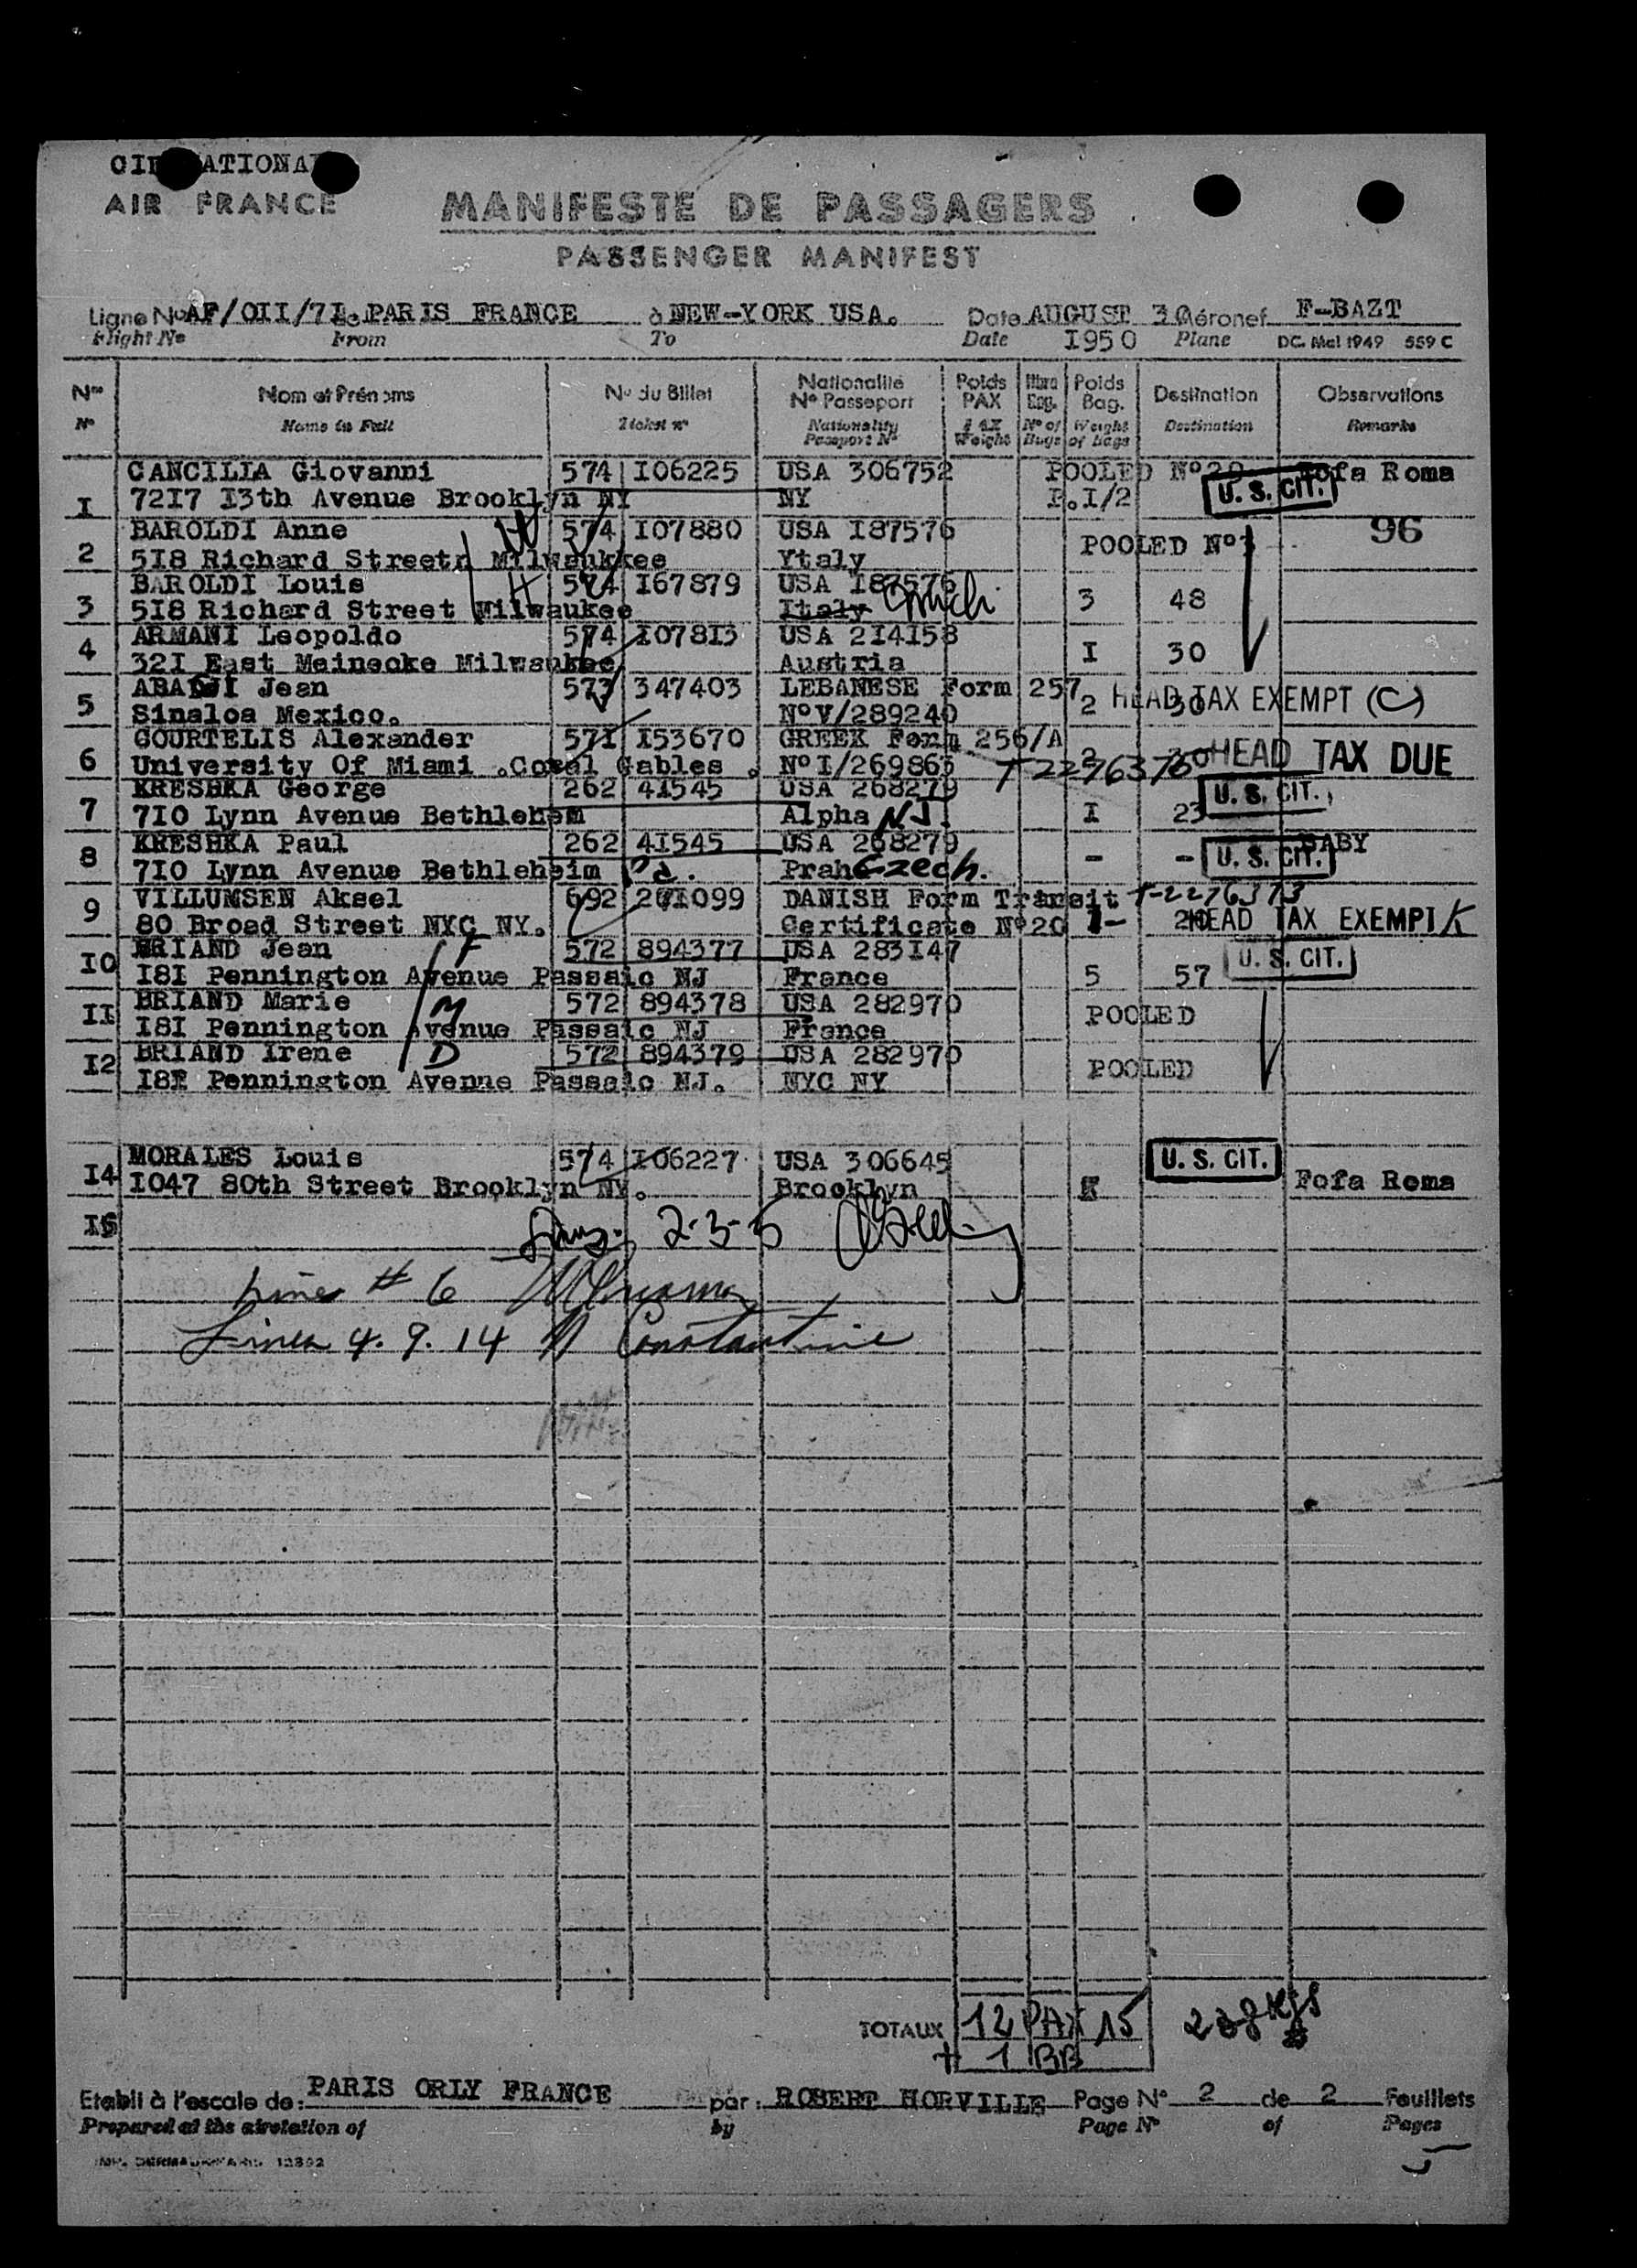 AIR FRANCE
MANIFESTE DE PASSAGERS
PASSENGER MANIFEST
Ligne No AF/OII/7I de PARIS FRANCE à NEW-YORK USA. Date AUGUST 30 Aéronef F-BAZT
Flight No From To Date I950 Plane DC. Mal 1949 559 C
Nos Nom et Prénoms No du Billet Nationalité No Passeport Poids PAX Nbre Bag. Poids Bag. Destination Observations
No Name in Full Ticket no Nationality Passport No PAX Weight No of Bags Weight of bags Destination Remarks
I CANCILIA Giovanni 574 I06225 USA 306752 POOLED No20 Fofa Roma
72I7 I3th Avenue Brooklyn NY NY P.I/2 U. S. CIT.
2 BAROLDI Anne W 574 I07880 USA I87576 POOLED No3 96
5I8 Richard Street Milwaukkee Ytaly
3 BAROLDI Louis H 574 I67879 USA I87576 3 48
5I8 Richard Street Milwaukee Italy
4 ARMANI Leopoldo 574 I078I3 USA 2I4I58 I 30
32I East Meinecke Milwaukee Austria
5 ABADJI Jean 573 347403 LEBANESE Form 257 2 30 HEAD TAX EXEMPT (C)
Sinaloa Mexico. No V/289240
6 COURTELIS Alexander 57I I53670 GREEK Form 256/A 2 30 HEAD TAX DUE
University Of Miami .Coral Gables . No I/269863 T2276375
7 KRESHKA George 262 4I545 USA 268279 I 23 U. S. CIT.
7I0 Lynn Avenue Bethlehem Alpha N.J.
8 KRESHKA Paul 262 4I545 USA 268279 - - U. S. CIT. BABY
7I0 Lynn Avenue Bethleheim Pa. Prah Czech.
9 VILLUMSEN Aksel 692 20I099 DANISH Form Transit T-2276373
80 Broad Street NYC NY. Certificate No20 I- 20 HEAD TAX EXEMPT K
I0 BRIAND Jean F 572 894377 USA 283I47 5 57 U. S. CIT.
I8I Pennington Avenue Passaic NJ France
II BRIAND Marie M 572 894378 USA 282970 POOLED
I8I Pennington Avenue Passaic NJ France
I2 BRIAND Irene D 572 894379 USA 282970 POOLED
I8I Pennington Avenue Passaic NJ. NYC NY
I4 MORALES Louis 574 I06227 USA 306645 U. S. CIT. Fofa Roma
I047 80th Street Brooklyn NY. Brooklyn
I5
2-3-5
Line # 6
Lines 4. 9. 14 Constantine
TOTAUX 12 PAX 15 238 Kgs
+ 1 BB
Etabli à l'escale de: PARIS ORLY FRANCE par: ROBERT HORVILLE Page No 2 de 2 Feuillets
Prepared at the airstation of by Page No of Pages